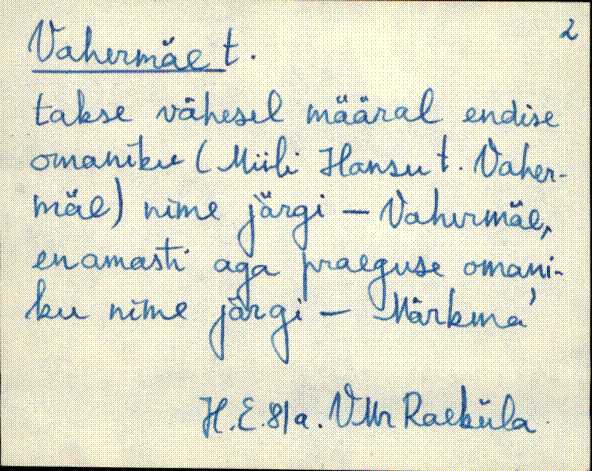 2
Vahermäe t.
takse vähesel määral endise
omaniku (Miili Hansu t. Vaher-
mäe) nime järgi – Vahermäe,
enamasti aga praeguse omani-
ku nime järgi – Märkma'
H.E. 81a. VMr Raeküla